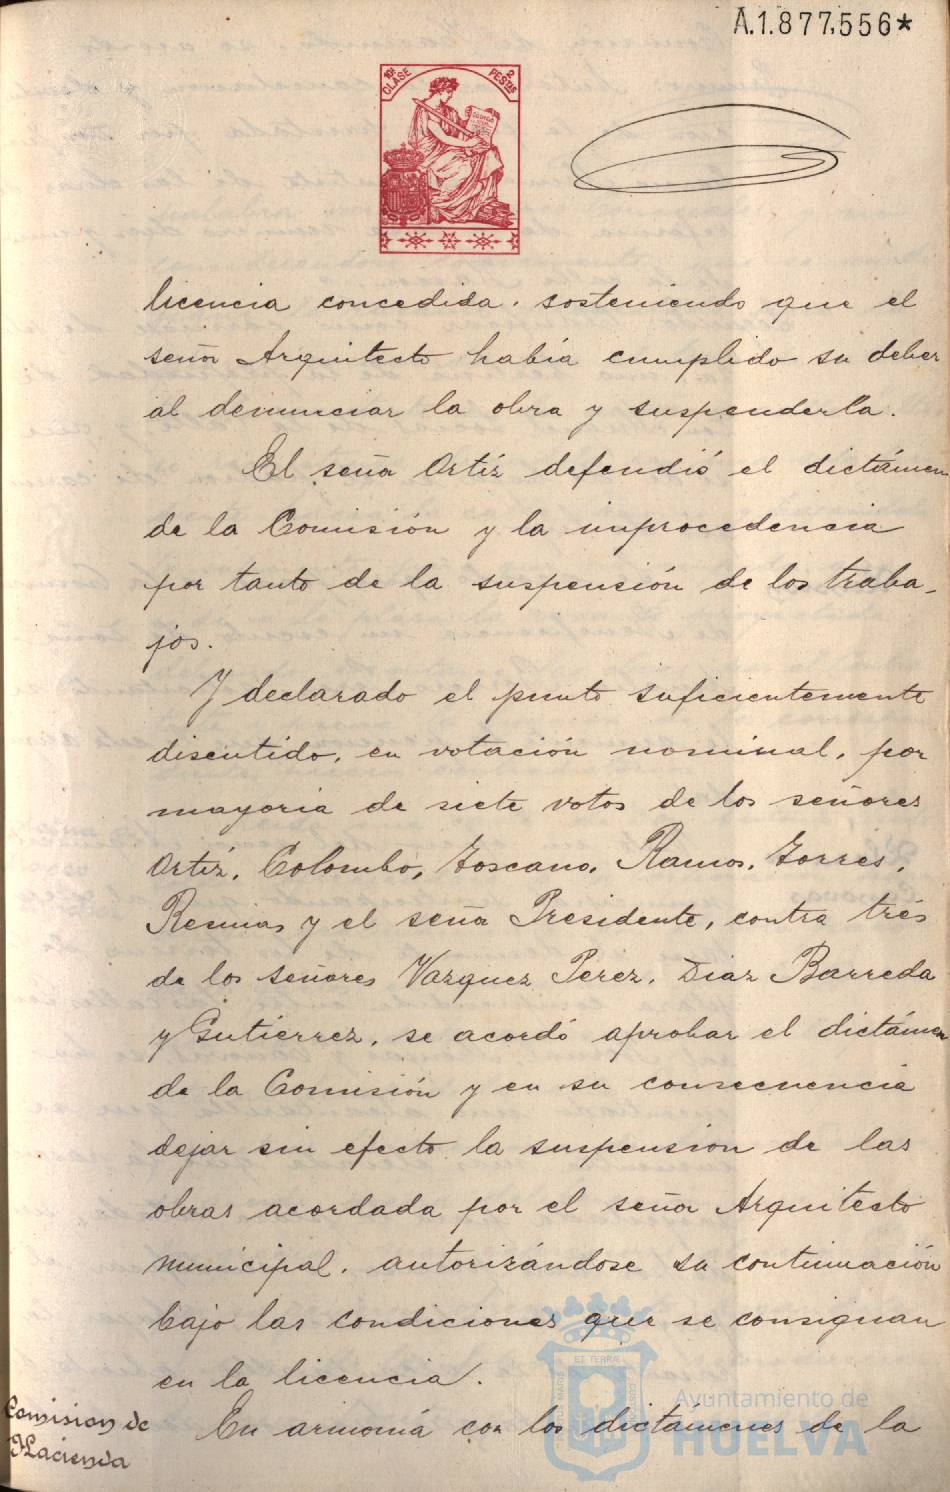 A.1.877,556*
10ª CLASE
2 PESTAS
licencia concedida, sosteniendo que el
señor Arquitecto había cumplido su deber
al denunciar la obra y suspenderla.
El señor Ortíz defendió el dictámen
de la Comisión y la improcedencia
por tanto de la suspensión de los traba-
jos.
Y declarado el punto suficientemente
discutido, en votación nominal, por
mayoria de siete votos de los señores
Ortíz, Colombo, Toscano, Ramos, Torres,
y el señor Presidente, contra trés
de los señores Vazquez Perez, Diaz Barreda
y Gutiérrez, se acordó aprobar el dictámen
de la Comisión y en su consecuencia
dejar sin efecto la suspension de las
obras acordada por el señor Arquitecto
municipal, autorizándose su continuación
bajo las condiciones que se consignan
en la licencia.
Comision de
Hacienda
En armonía con los dictámenes de la
Ayuntamiento de
HUELVA